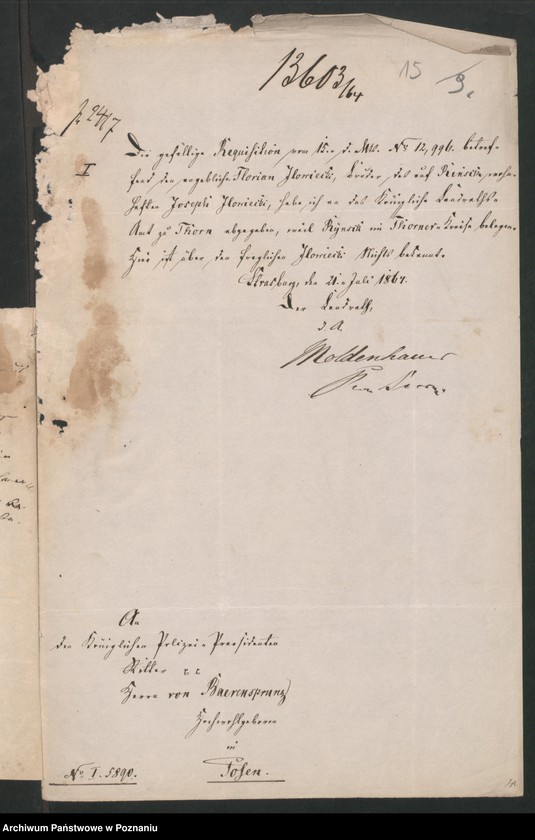 13603/64
15
9.
p. 24/7
I
Die gefällige Requisition vom 15.n d. Mts. No 12,996. betref-
fend den angeblichen Florian Ilowiecki, Bruder des auf Rinsk verhaf-
hafteten Joseph Ilowiecki, habe ich an das Königliche Landraths-
Amt zu Thorn abgegeben, weil Rynsk im Thorner-Kreise belegen.
Hier ist über den fraglichen Ilowiecki Nichts bekannt.
Strasburg, den 21.n Juli 1864.
Der Landrath,
J. A.
Moldenhauer
An
den Königlichen Polizei-Praesidenten
Ritter
Herrn von Baerensprung
Hochwohlgeboren
in
Posen.
No I. 5890.
Archiwum Państwowe w Poznaniu